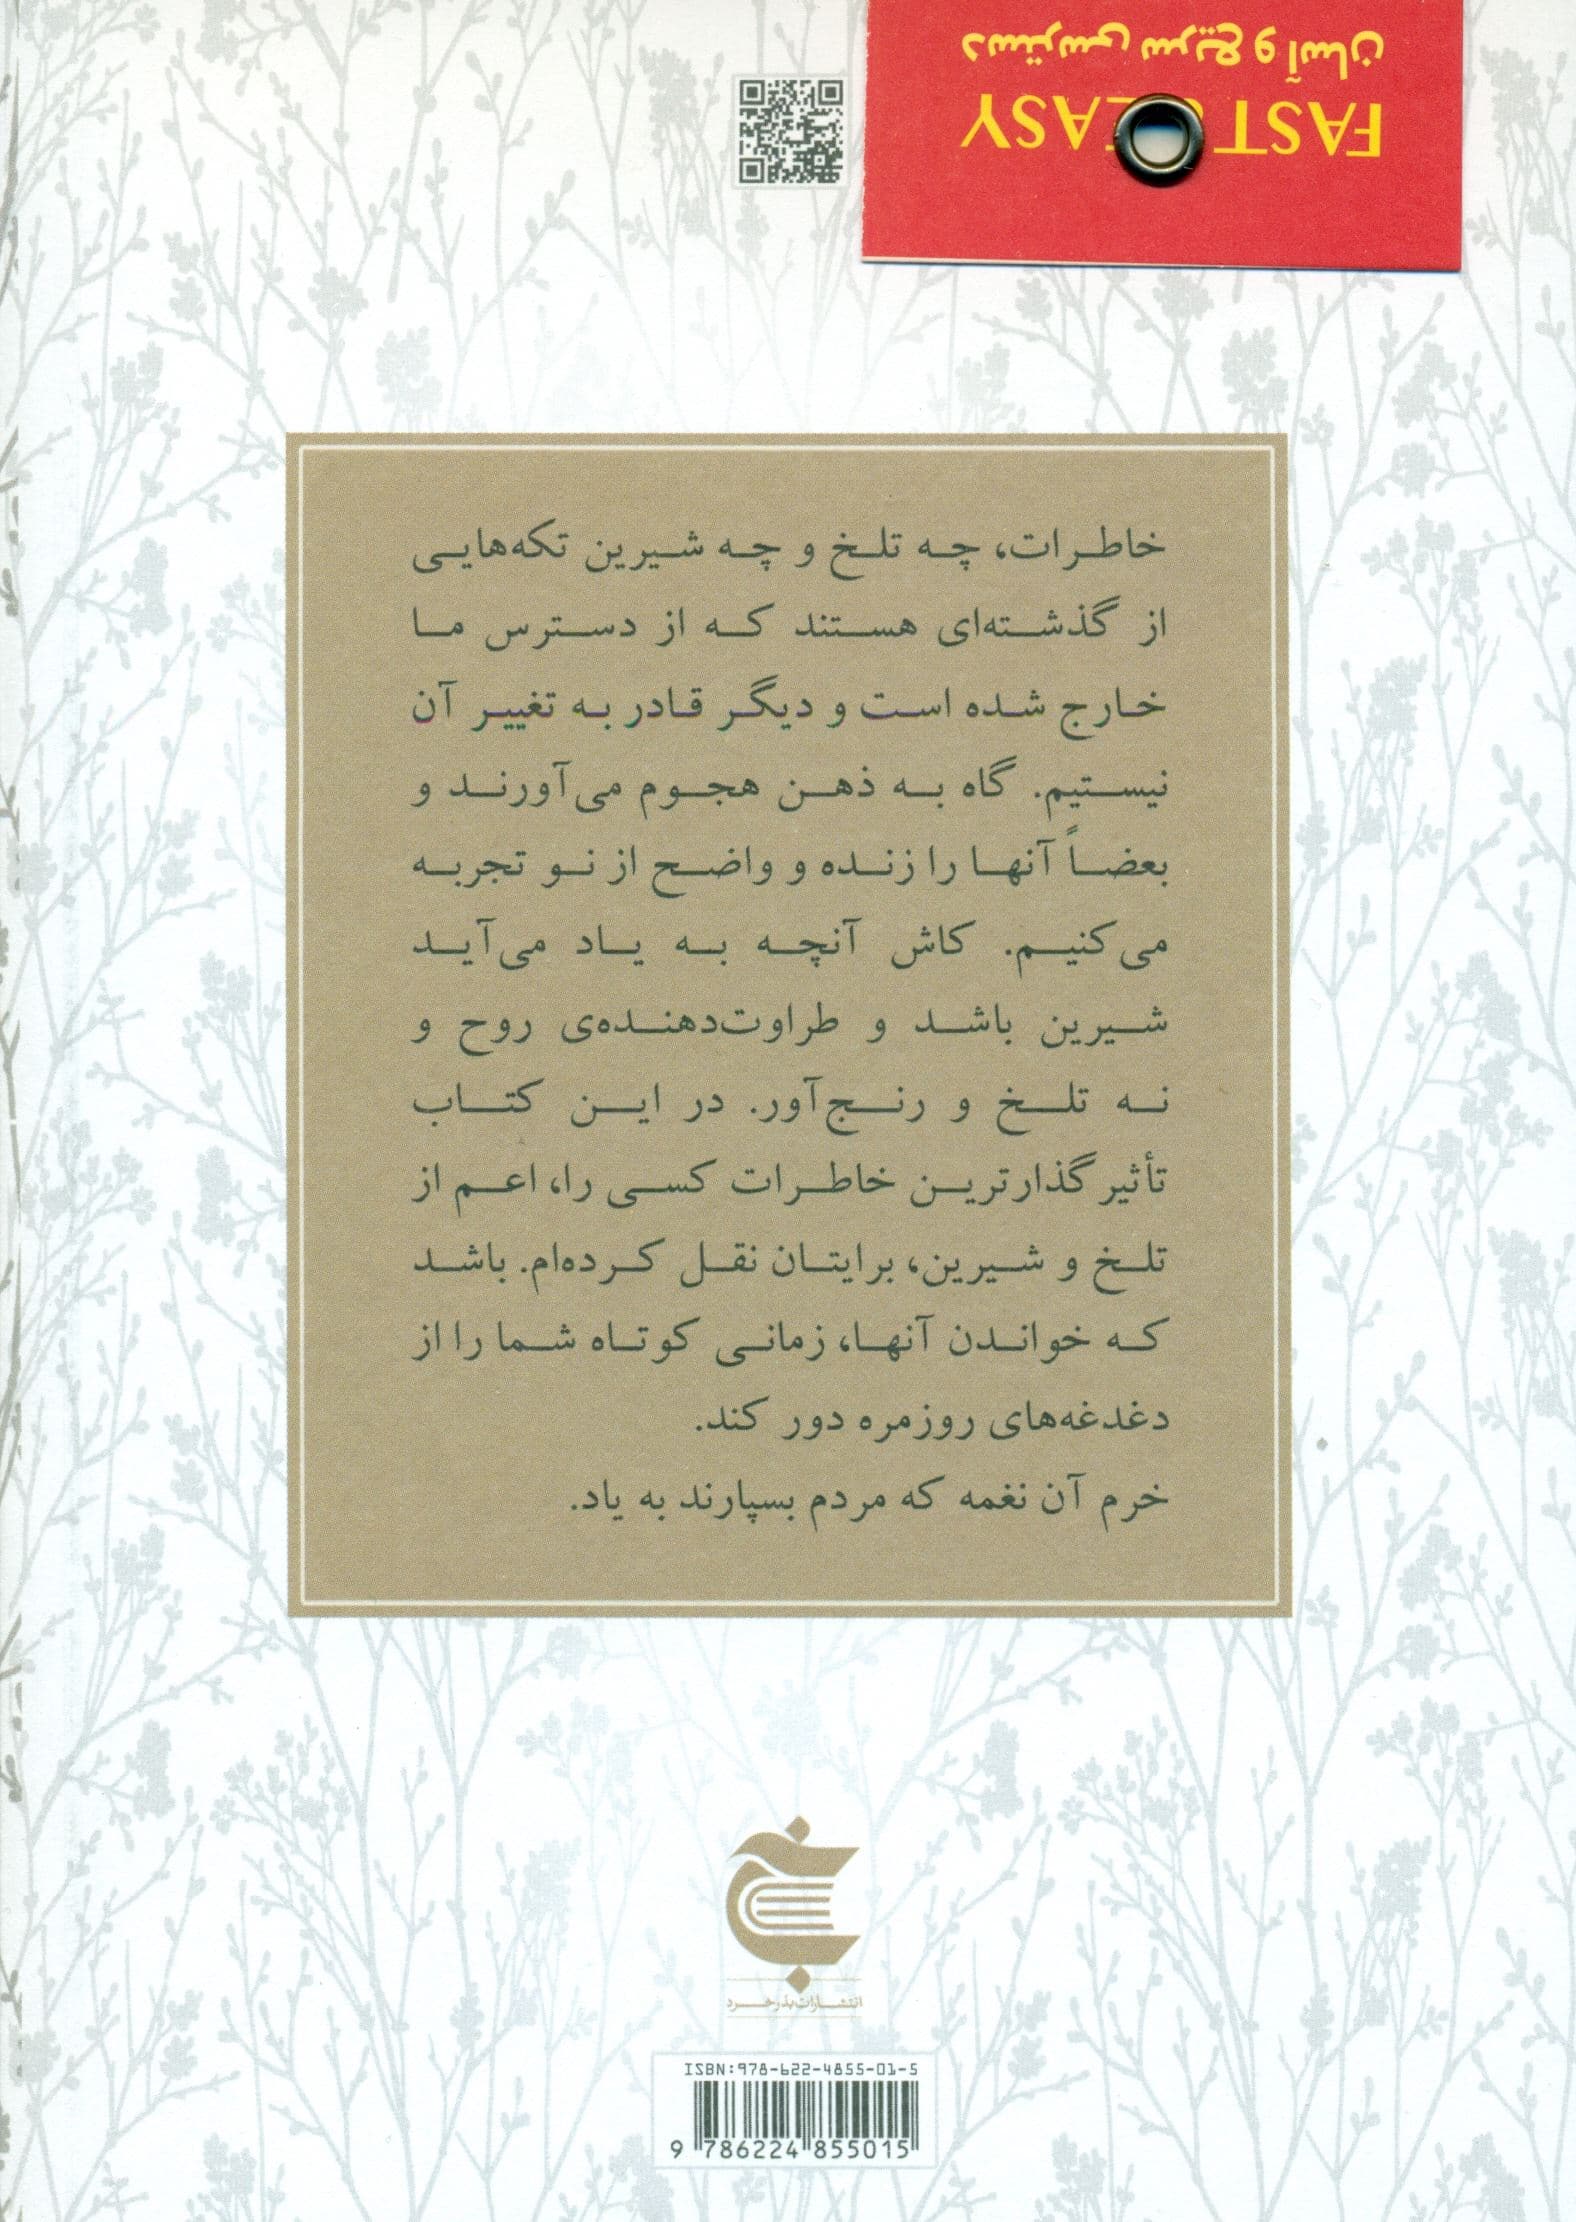 دسترسی سریع و آسان
FAST & EASY
خاطرات، چه تلخ و چه شیرین تکه‌هایی
از گذشته‌ای هستند که از دسترس ما
خارج شده است و دیگر قادر به تغییر آن
نیستیم. گاه به ذهن هجوم می‌آورند و
بعضاً آنها را زنده و واضح از نو تجربه
می‌کنیم. کاش آنچه به یاد می‌آید
شیرین باشد و طراوت‌دهنده‌ی روح و
نه تلخ و رنج‌آور. در این کتاب
تأثیرگذارترین خاطرات کسی را، اعم از
تلخ و شیرین، برایتان نقل کرده‌ام. باشد
که خواندن آنها، زمانی کوتاه شما را از
دغدغه‌های روزمره دور کند.
خرم آن نغمه که مردم بسپارند به یاد.
انتشارات بذر خرد
ISBN:978-622-4855-01-5
9 786224 855015